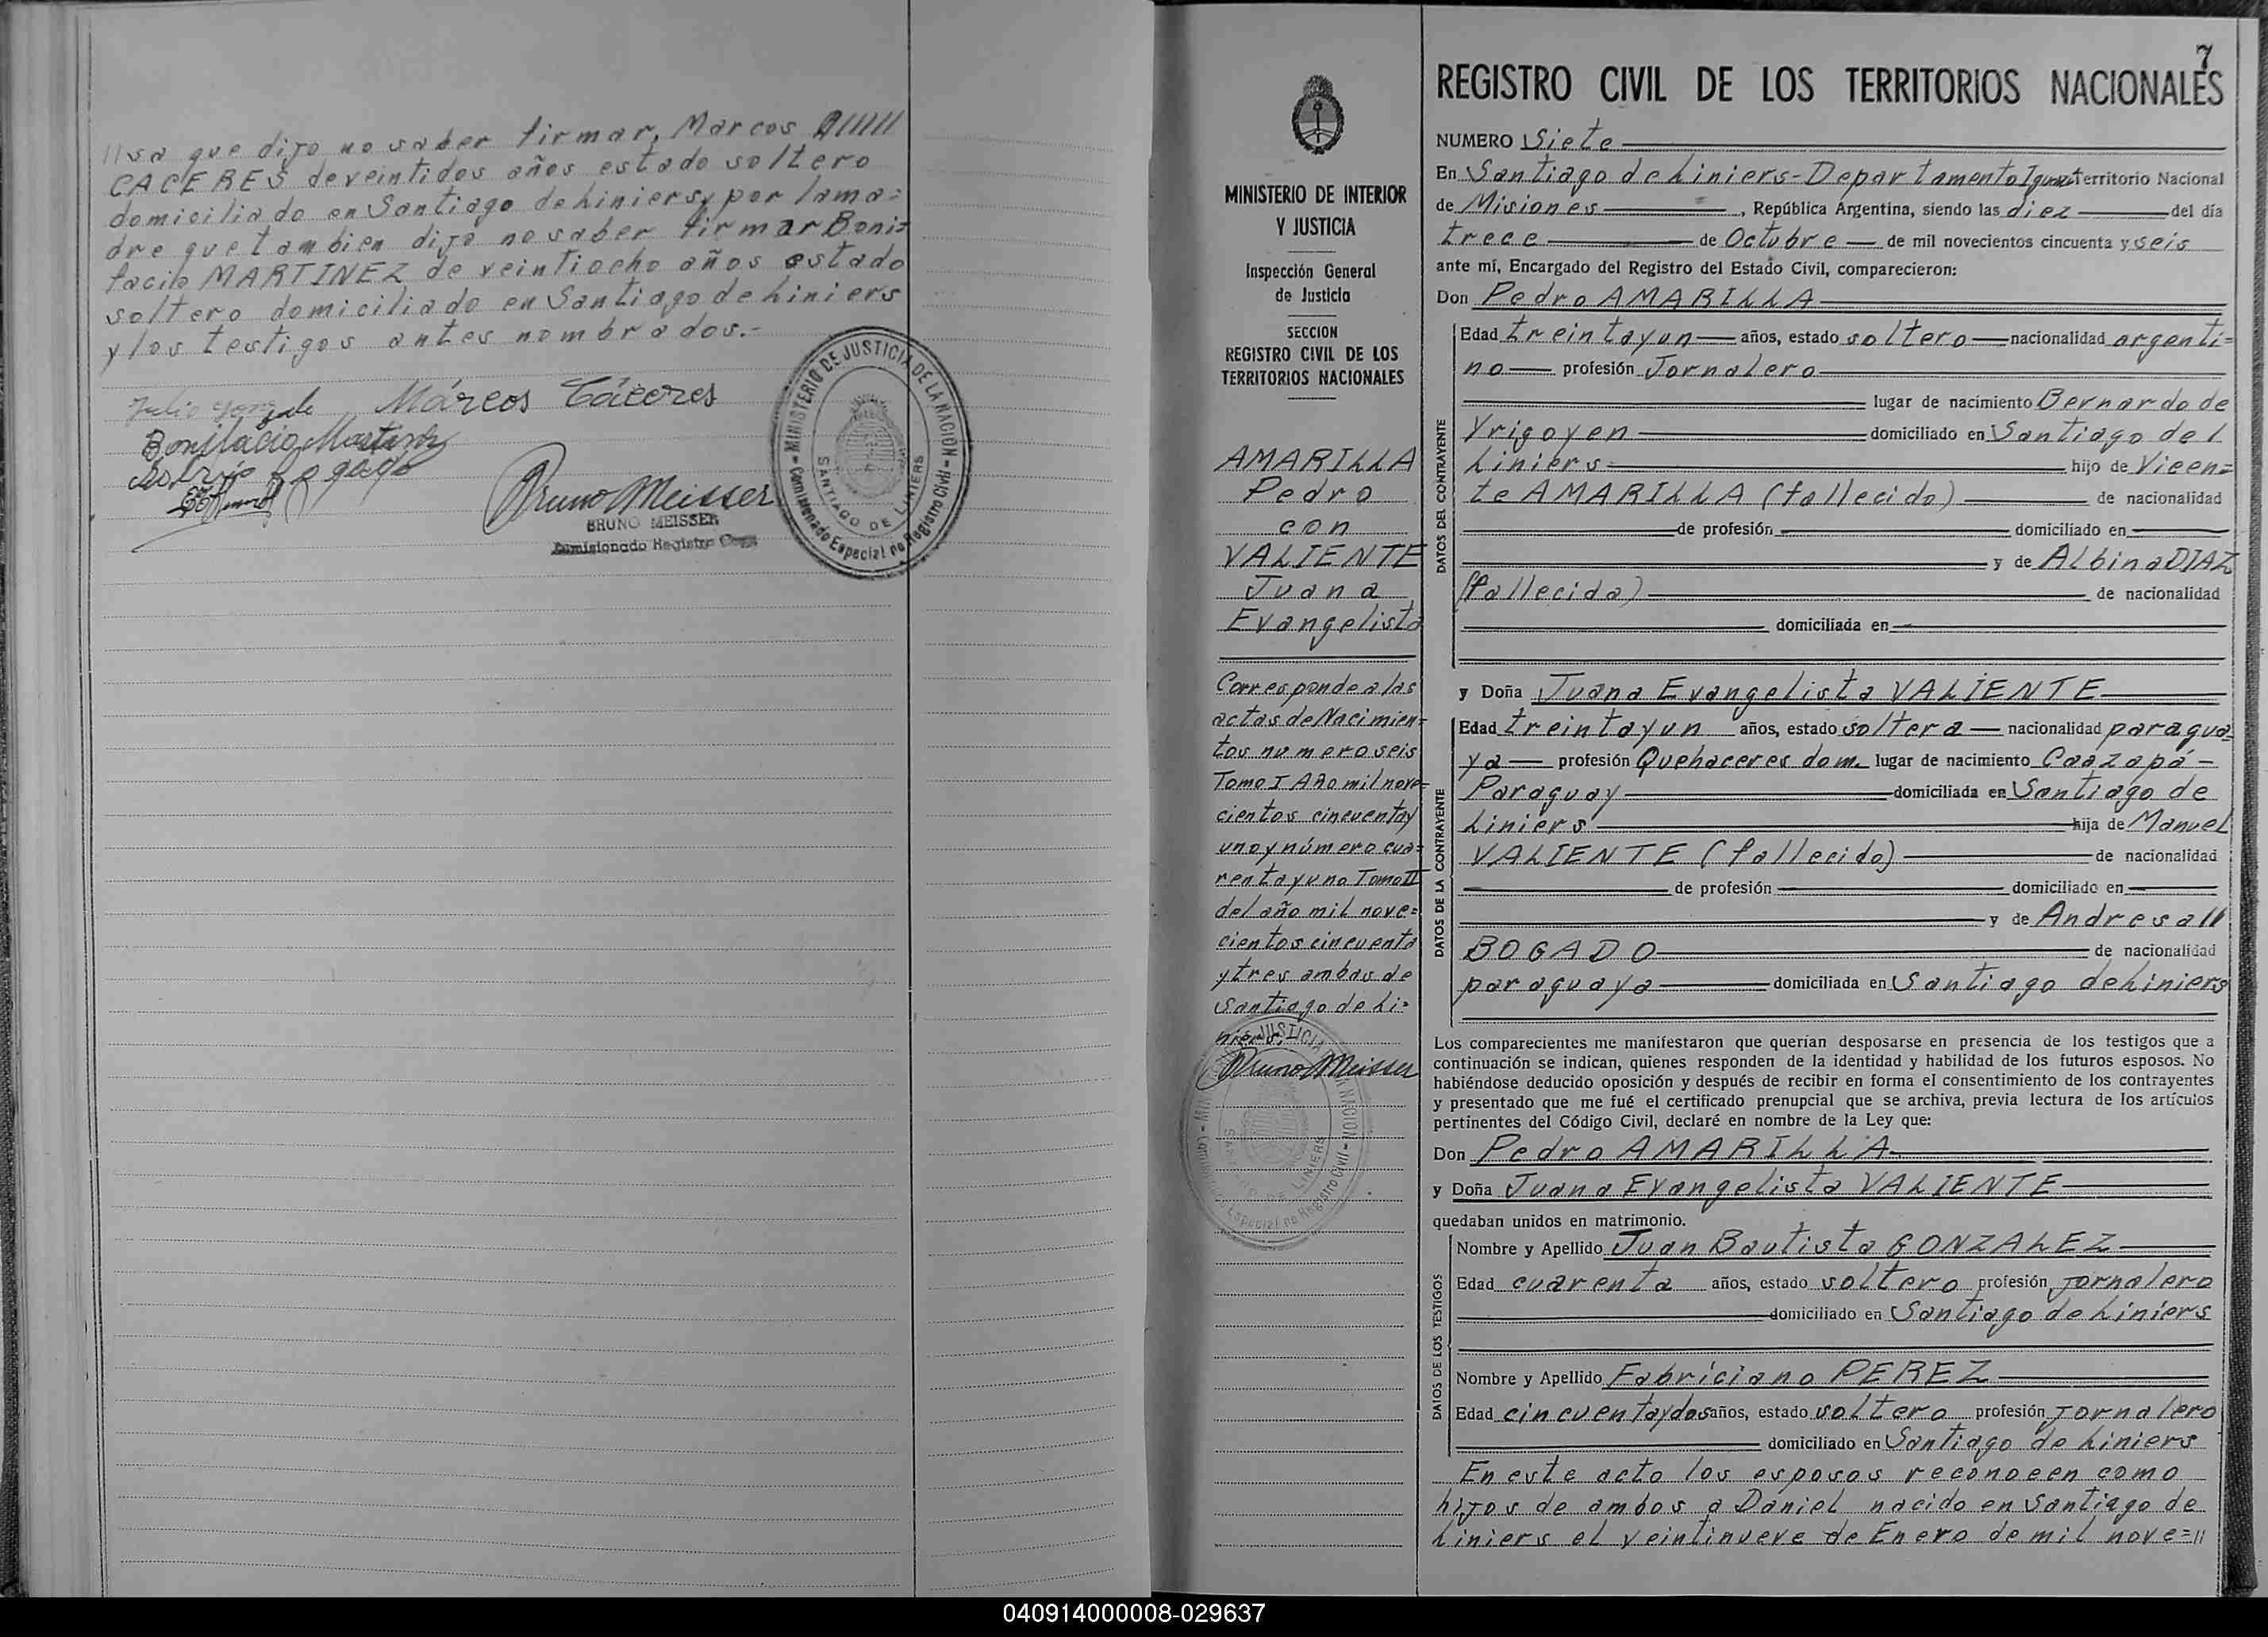 //sa que dijo no saber firmar, Marcos
CACERES de veintidos años estado soltero
domiciliado en Santiago de Liniers y por la ma=
dre que tambien dijo no saber firmar Boni=
facio MARTINEZ de veintiocho años estado
soltero domiciliado en Santiago de Liniers
y los testigos antes nombrados.-
Julio Márcos Cáceres
Bonifacio Martinez
Bogado
Bruno Meisser
BRUNO MEISSER
Comisionado Registro
MINISTERIO DE JUSTICIA DE LA NACION - Comisionado Especial no Registro Civil -
SANTIAGO DE LINIERS
MINISTERIO DE INTERIOR
Y JUSTICIA
Inspección General
de Justicia
SECCION
REGISTRO CIVIL DE LOS
TERRITORIOS NACIONALES
AMARILLA
Pedro
con
VALIENTE
Juana
Evangelista
Corresponde a las
actas de Nacimien=
tos numero seis
Tomo I Año mil nove=
cientos cincuenta y
uno y número cua=
renta y uno Tomo II
del año mil nove=
cientos cincuenta
y tres ambas de
Santiago de Li=
niers.
Bruno Meisser
7
REGISTRO CIVIL DE LOS TERRITORIOS NACIONALES
NUMERO Siete
En Santiago de Liniers-Departamento Iguazú Territorio Nacional
de Misiones, República Argentina, siendo las diez del día
trece de Octubre de mil novecientos cincuenta y seis
ante mí, Encargado del Registro del Estado Civil, comparecieron:
Don Pedro AMARILLA
DATOS DEL CONTRAYENTE
Edad treinta y un años, estado soltero nacionalidad argenti=
no profesión Jornalero
lugar de nacimiento Bernardo de
Yrigoyen domiciliado en Santiago de
Liniers hijo de Vicen=
te AMARILLA (fallecido) de nacionalidad
de profesión domiciliado en
y de Albina DIAZ
(fallecida) de nacionalidad
domiciliada en
y Doña Juana Evangelista VALIENTE
DATOS DE LA CONTRAYENTE
Edad treinta y un años, estado soltera nacionalidad paragua=
ya profesión Quehaceres dom. lugar de nacimiento Caazapá-
Paraguay domiciliada en Santiago de
Liniers hija de Manuel
VALIENTE (fallecido) de nacionalidad
de profesión domiciliado en
y de Andresa //
BOGADO de nacionalidad
paraguaya domiciliada en Santiago de Liniers
Los comparecientes me manifestaron que querían desposarse en presencia de los testigos que a
continuación se indican, quienes responden de la identidad y habilidad de los futuros esposos. No
habiéndose deducido oposición y después de recibir en forma el consentimiento de los contrayentes
y presentado que me fué el certificado prenupcial que se archiva, previa lectura de los artículos
pertinentes del Código Civil, declaré en nombre de la Ley que:
Don Pedro AMARILLA
y Doña Juana Evangelista VALIENTE
quedaban unidos en matrimonio.
DATOS DE LOS TESTIGOS
Nombre y Apellido Juan Bautista GONZALEZ
Edad cuarenta años, estado soltero profesión Jornalero
domiciliado en Santiago de Liniers
Nombre y Apellido Fabríciano PEREZ
Edad cincuenta y dos años, estado soltero profesión Jornalero
domiciliado en Santiago de Liniers
En este acto los esposos reconocen como
hijos de ambos a Daniel nacido en Santiago de
Liniers el veintinueve de Enero de mil nove=//
040914000008-029637